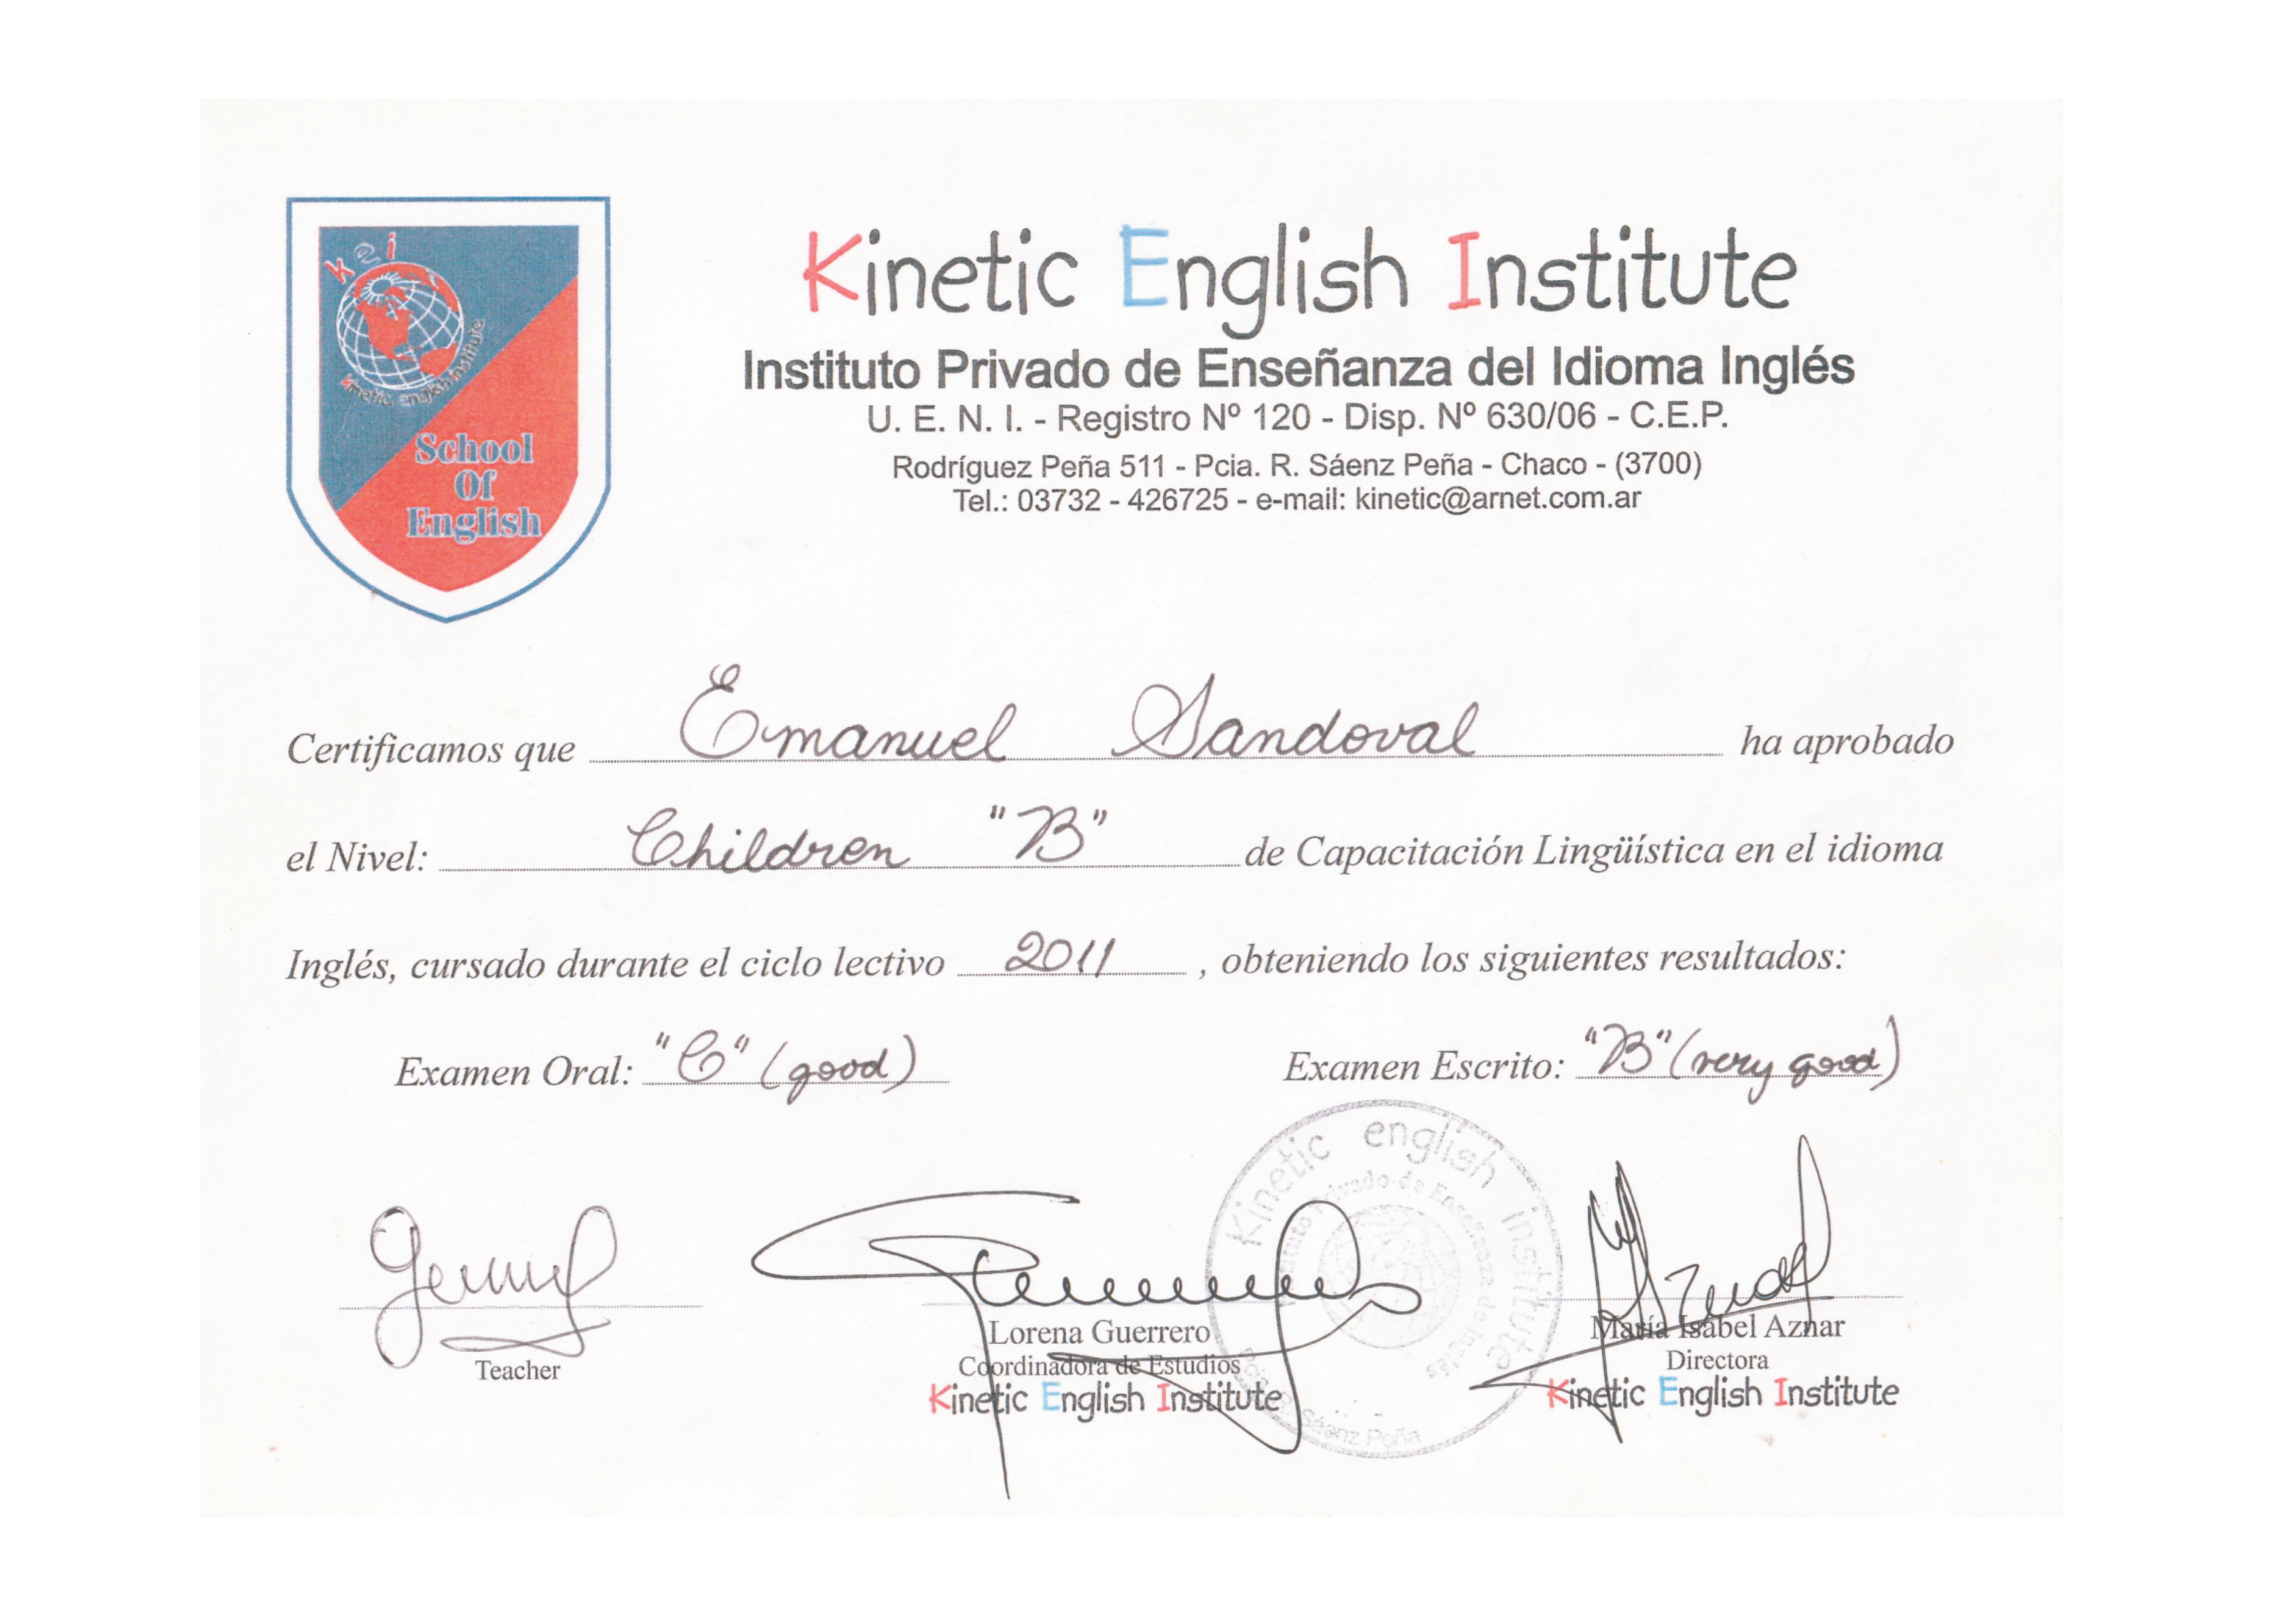 kei
kinetic english institute
School
Of
English
Kinetic English Institute
Instituto Privado de Enseñanza del Idioma Inglés
U. E. N. I. - Registro Nº 120 - Disp. Nº 630/06 - C.E.P.
Rodríguez Peña 511 - Pcia. R. Sáenz Peña - Chaco - (3700)
Tel.: 03732 - 426725 - e-mail: kinetic@arnet.com.ar
Certificamos que Emanuel Sandoval ha aprobado
el Nivel: Children "B" de Capacitación Lingüística en el idioma
Inglés, cursado durante el ciclo lectivo 2011, obteniendo los siguientes resultados:
Examen Oral: "C" (good) Examen Escrito: "B" (very good)
Kinetic english institute
Instituto Privado de Enseñanza de Inglés
Sáenz Peña
Teacher
Lorena Guerrero
Coordinadora de Estudios
Kinetic English Institute
María Isabel Aznar
Directora
Kinetic English Institute